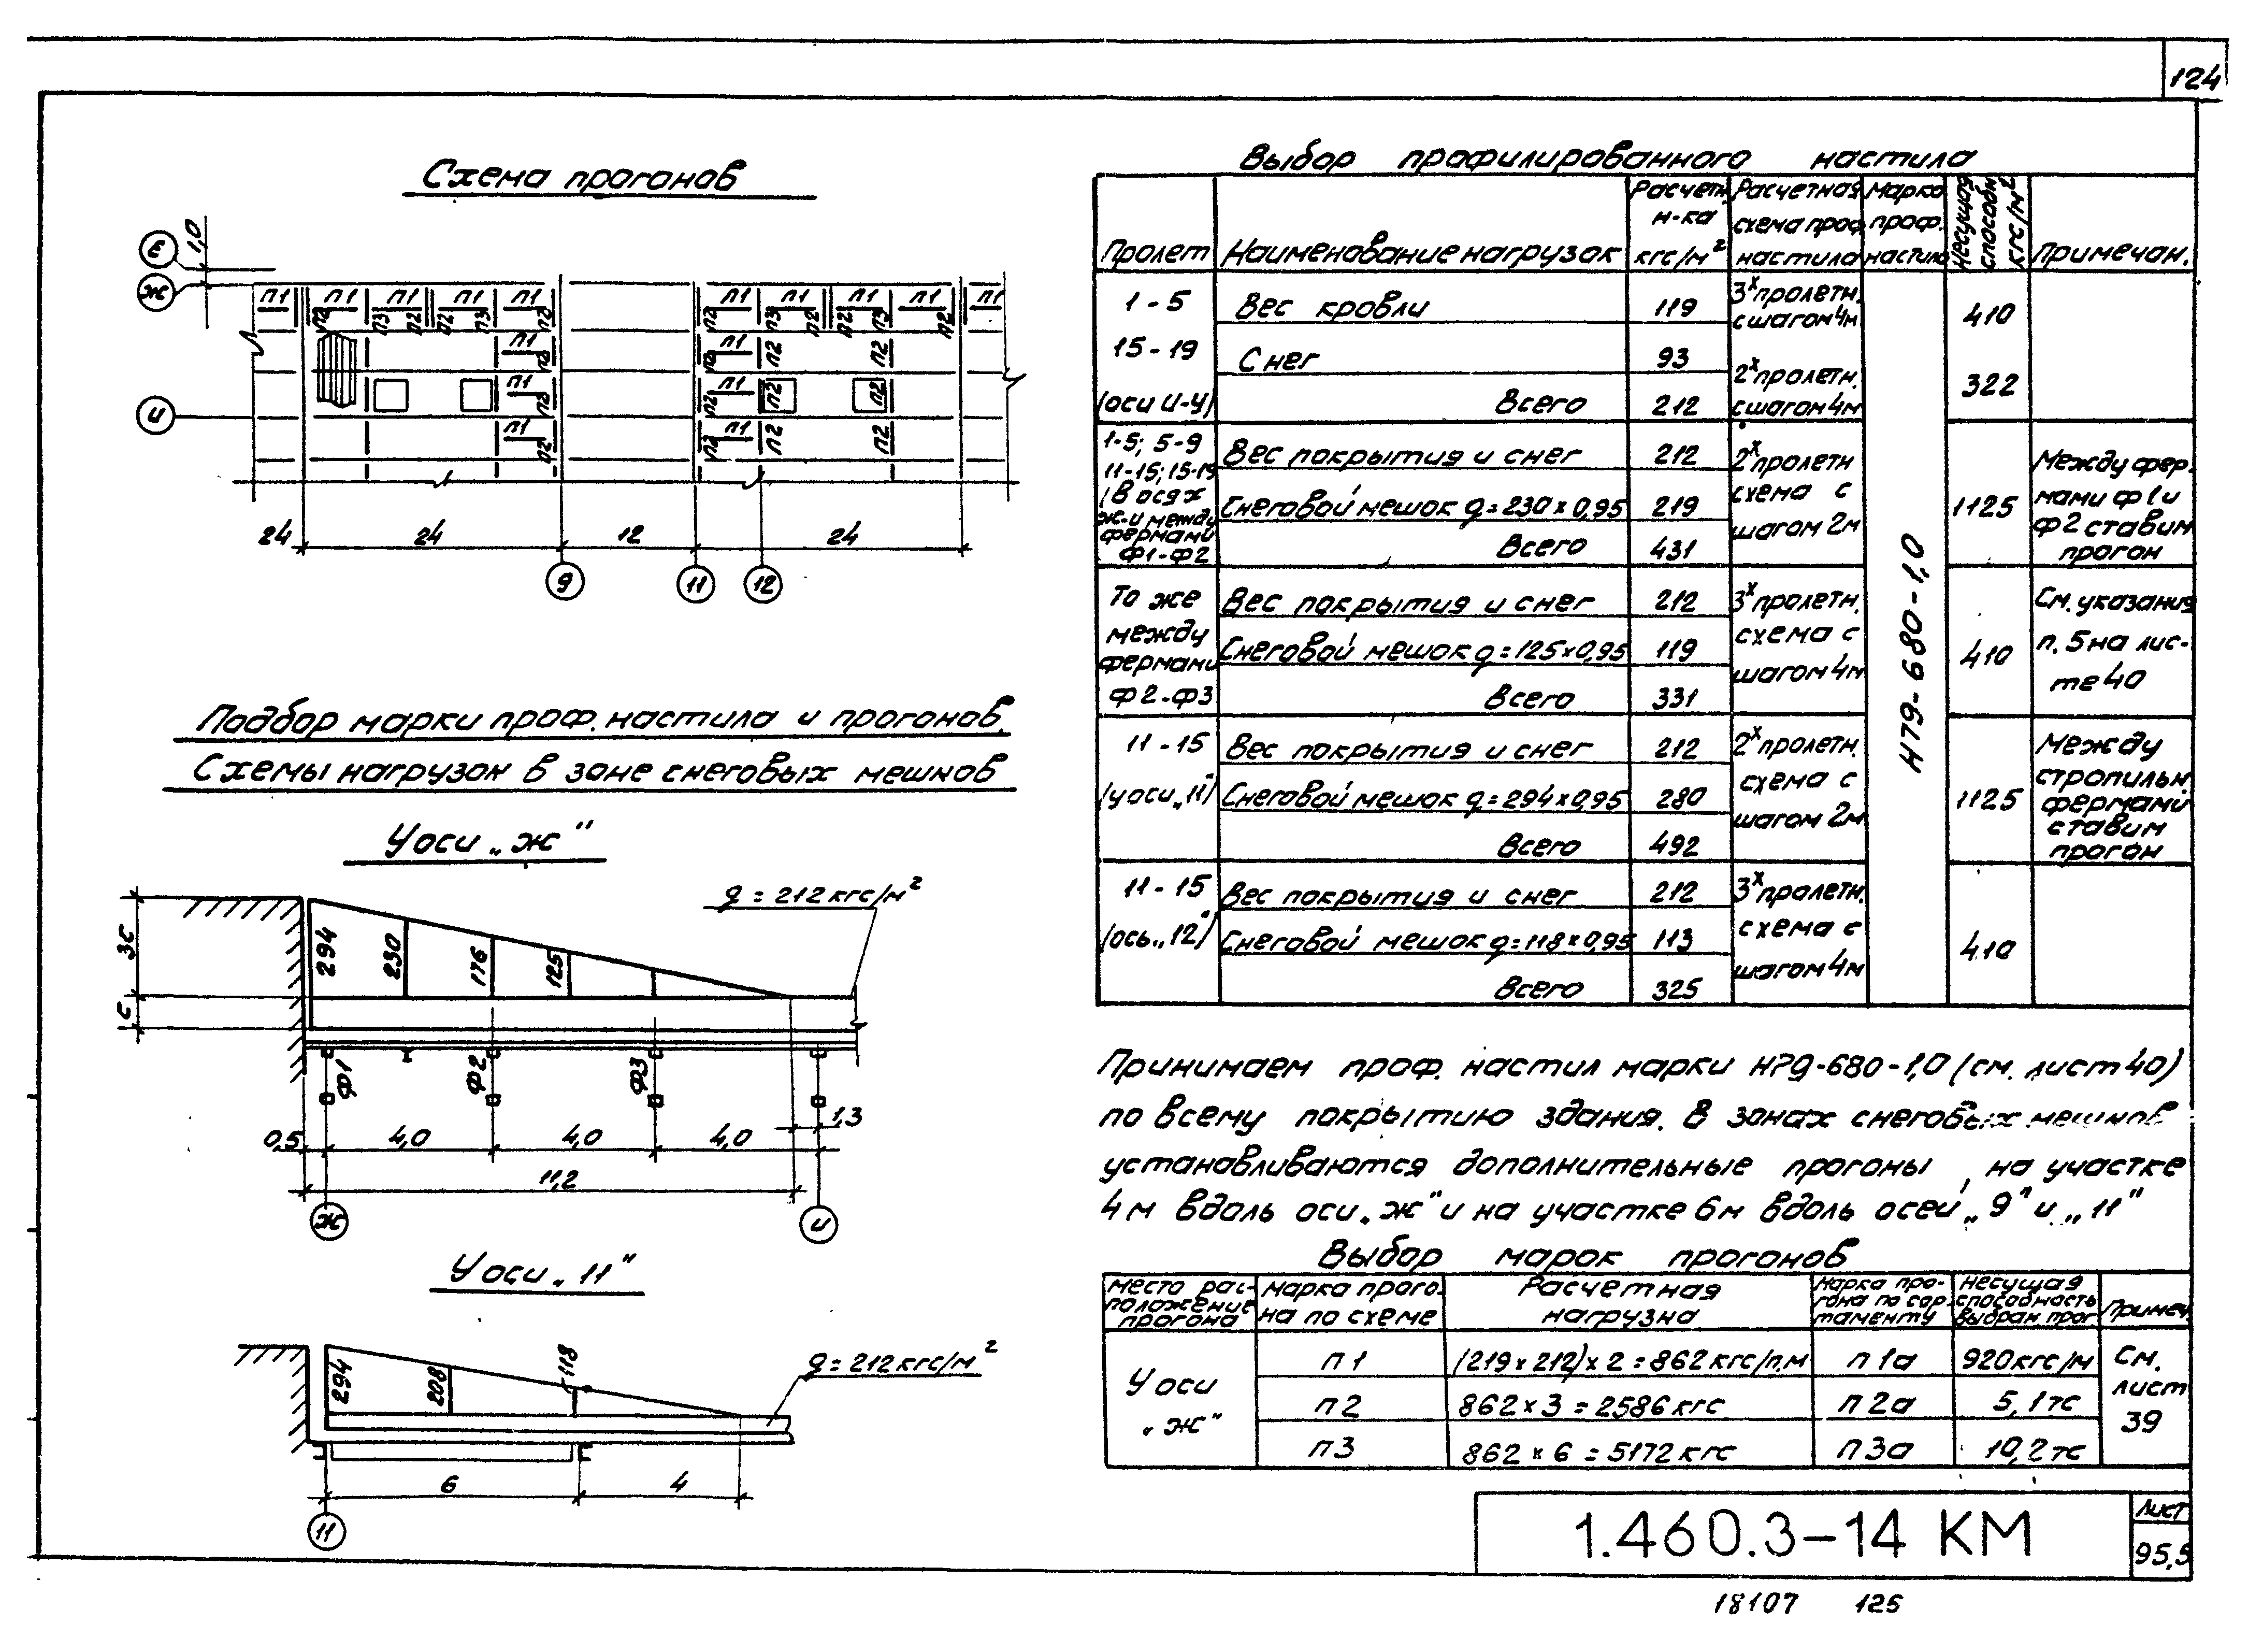 124
Схема прогонов
Е
1,0
Ж
И
П1 П1 П1 П1 П1 П1 П1 П1 П1 П1
П2 П3 П2 П2 П3 П2 П2 П3 П2 П2 П3 П2
П1 П2 П1 П2 П2 П2
П1 П2 П1 П2 П2 П2
П1 П2 П1 П2 П2 П2
24 24 12 24
9 11 12
Подбор марки проф. настила и прогонов.
Схемы нагрузок в зоне снеговых мешков
У оси „Ж"
q = 212 кгс/м²
3С
С
294 230 176 125
Ф1 Ф2 Ф3
1,3
0,5 4,0 4,0 4,0
11,2
Ж И
У оси „11"
q = 212 кгс/м²
294 208 118
6 4
11
Выбор профилированного настила
Пролет
Наименование нагрузок
Расчетн. н-ка кгс/м²
Расчетная схема проф. настила
Марка проф. настила
Несущая способн. кгс/м²
Примечан.
1-5
15-19
(оси И-Ч)
Вес кровли 119
Снег 93
Всего 212
3х пролетн. с шагом 4м
410
2х пролетн. с шагом 4м
322
Н79-680-1,0
1-5; 5-9
11-15; 15-19
(В осях
Ж-И между
фермами
Ф1-Ф2
Вес покрытия и снег 212
Снеговой мешок q=230×0,95 219
Всего 431
2х пролетн
схема с
шагом 2м
1125
Между фер.
мами Ф1 и
Ф2 ставим
прогон
То же
между
фермами
Ф2-Ф3
Вес покрытия и снег 212
Снеговой мешок q=125×0,95 119
Всего 331
3х пролетн.
схема с
шагом 4м
410
См. указания
п. 5 на лис-
те 40
11-15
(у оси „11")
Вес покрытия и снег 212
Снеговой мешок q=294×0,95 280
Всего 492
2х пролетн.
схема с
шагом 2м
1125
Между
стропильн.
фермами
ставим
прогон
11-15
(ось „12")
Вес покрытия и снег 212
Снеговой мешок q=118×0,95 113
Всего 325
3х пролетн.
схема с
шагом 4м
410
Принимаем проф. настил марки Н79-680-1,0 (см. лист 40)
по всему покрытию здания. В зонах снеговых мешков
устанавливаются дополнительные прогоны, на участке
4м вдоль оси „Ж" и на участке 6м вдоль осей „9" и „11"
Выбор марок прогонов
Место рас-
положение
прогона
Марка прого.
на по схеме
Расчетная
нагрузка
Марка про-
гона по сор-
таменту
Несущая
способность
выбран. прог
Примеч.
У оси
„Ж"
П1 (219×212)×2=862кгс/п.м П1а 920кгс/м
П2 862×3=2586кгс П2а 5,1тс
П3 862×6=5172кгс П3а 10,2тс
См.
лист
39
1.460.3-14 КМ
Лист
95,5
18107 125